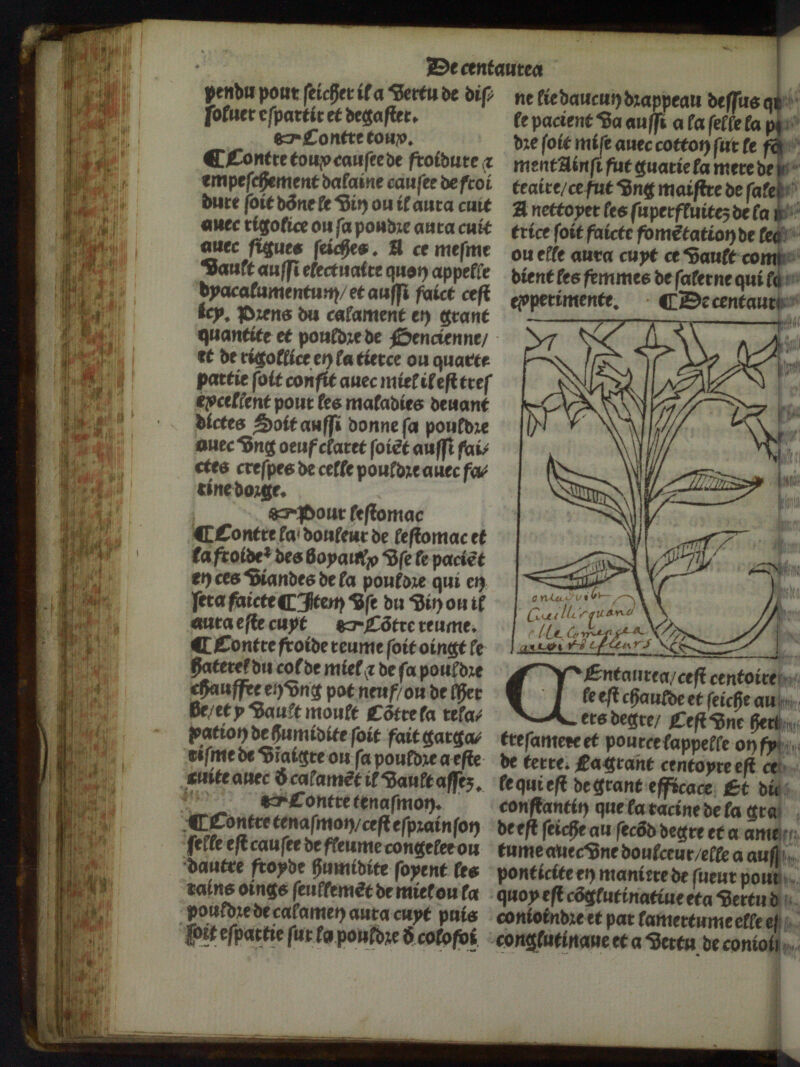 De centaurea
pendu pour seicher il a vertu de dis⸗
soluer espartir et degaster.
☞ Contre toux.
¶ Contre toux causee de froidure ⁊
empeschement dalaine causee de froi
dure soit dōne le vin ou il aura cuit
auec rigolice ou sa poudre aura cuit
auec figues seiches. A ce mesme
vault aussi electuaire quon appelle
dyacalumentum/ et aussi faict cest
icy. Prens du calament en grant
quantite et pouldre de Gencienne/
et de rigollice en la tierce ou quarte
partie soit confit auec miel il est tres
excellent pour les maladies deuant
dictes Soit aussi donne sa pouldre
auec vng oeuf claret soiēt aussi fai⸗
ctes crespes de celle pouldre auec fa⸗
rine dorge.
☞ Pour lestomac
¶ Contre la douleur de lestomac et
la froide² des boyaulx vse le paciēt
en ces viandes de la pouldre qui en
sera faicte ¶ Item vse du vin ou il
aura este cuyt ☞ Cōtre reume.
¶ Contre froide reume soit oingt le
haterel du col de miel ⁊ de sa pouldre
chauffee en vng pot neuf/ ou de lher
be/ et y vault moult Cōtre la rela⸗
xation de humidite soit fait garga⸗
risme de viaigre ou sa pouldre a este
cuite auec d̄ calamēt il vault assez.
☞ Contre tenasmon.
¶ Contre tenasmon/ cest esprainson
selle est causee de fleume congelee ou
dautre froyde humidite soyent les
rains oings seullemēt de miel ou la
pouldre de calamen aura cuyt puis
soit espartie sur la pouldre d̄ colofoi
ne lie daucun drappeau dessus
le pacient va aussi a la selle la
dre soit mise auec cotton sur le
ment Ainsi fut guarie la mere de
teaire/ ce fut vng maistre de
A nettoyer les superfluitez de la
trice soit faicte fomētation de
ou elle aura cuyt ce vault
dient les femmes de salerne qui
experimente. ¶ De
Cueillir quand
elle Comensea
auoir des fleurs
CEntaurea/ cest centoire
le est chaulde et seiche au
ers degre/ Cest vne
tresamere et pource lappelle on
de terre. La grant centoyre est
le qui est de grant efficace Et
constantin que la racine de la
de est seiche au secōd degre et a
tume auec vne doulceur/ elle a
ponticite en maniere de sueur
quoy est cōglutinatiue et a vertu
conioindre et par lamertume elle
conglutinaue et a vertu de